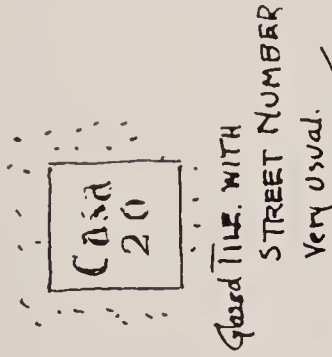 Casa
20
Glazed TILE. WITH
STREET NUMBER
Very Usual.